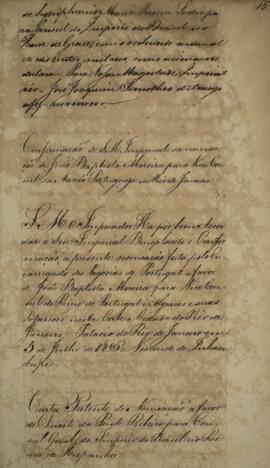 15
de Eugenio Maria Pereira Sodre pa
ra Consul do Imperio do Brasil no
Havre de Grace com o ordenado annual
de reis cento mil reis como acima se
declara. Para Vossa Magestade Imperial
ver. José Joaquim Timotheo de Araujo
a fez
Confirmação de S. M. Imperial da nomea
ção de João Baptista Moreira para Vice Con
sul da nação Portugueza no Rio de Janeiro
S. M. O Imperador Ha por bem Accor
dar o Seu Imperial Beneplacito e Confir
mação á presente nomeação feita pelo En
carregado de Negocios de Portugal a favor
de João Baptista Moreira para Vice Con
sul do Reino de Portugal e Algarves e suas
nesta Corte e Cidade do Rio de
Janeiro. Palacio do Rio de Janeiro em
5 de Julho de 1826. Visconde de Inham
bupe.
Carta Patente de Nomeação a favor
de Duarte da Ponte Ribeiro para Con
sul Geral do Imperio do Brasil no Rei
no da Hespanha